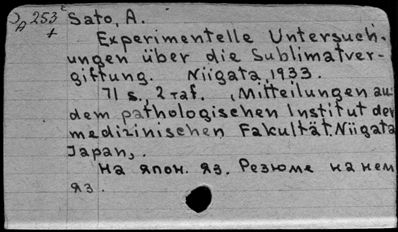 A 253 Sato, A.
Experimentelle Untersuch-
ungen über die Sublimatver-
giftung. Niigata, 1933.
71 s., 2 Taf. „Mitteilungen au
dem pathologischen Institut der
medizinischen Fakultät. Niigata
Japan„.
На япон. яз. Резюме на нем
яз.